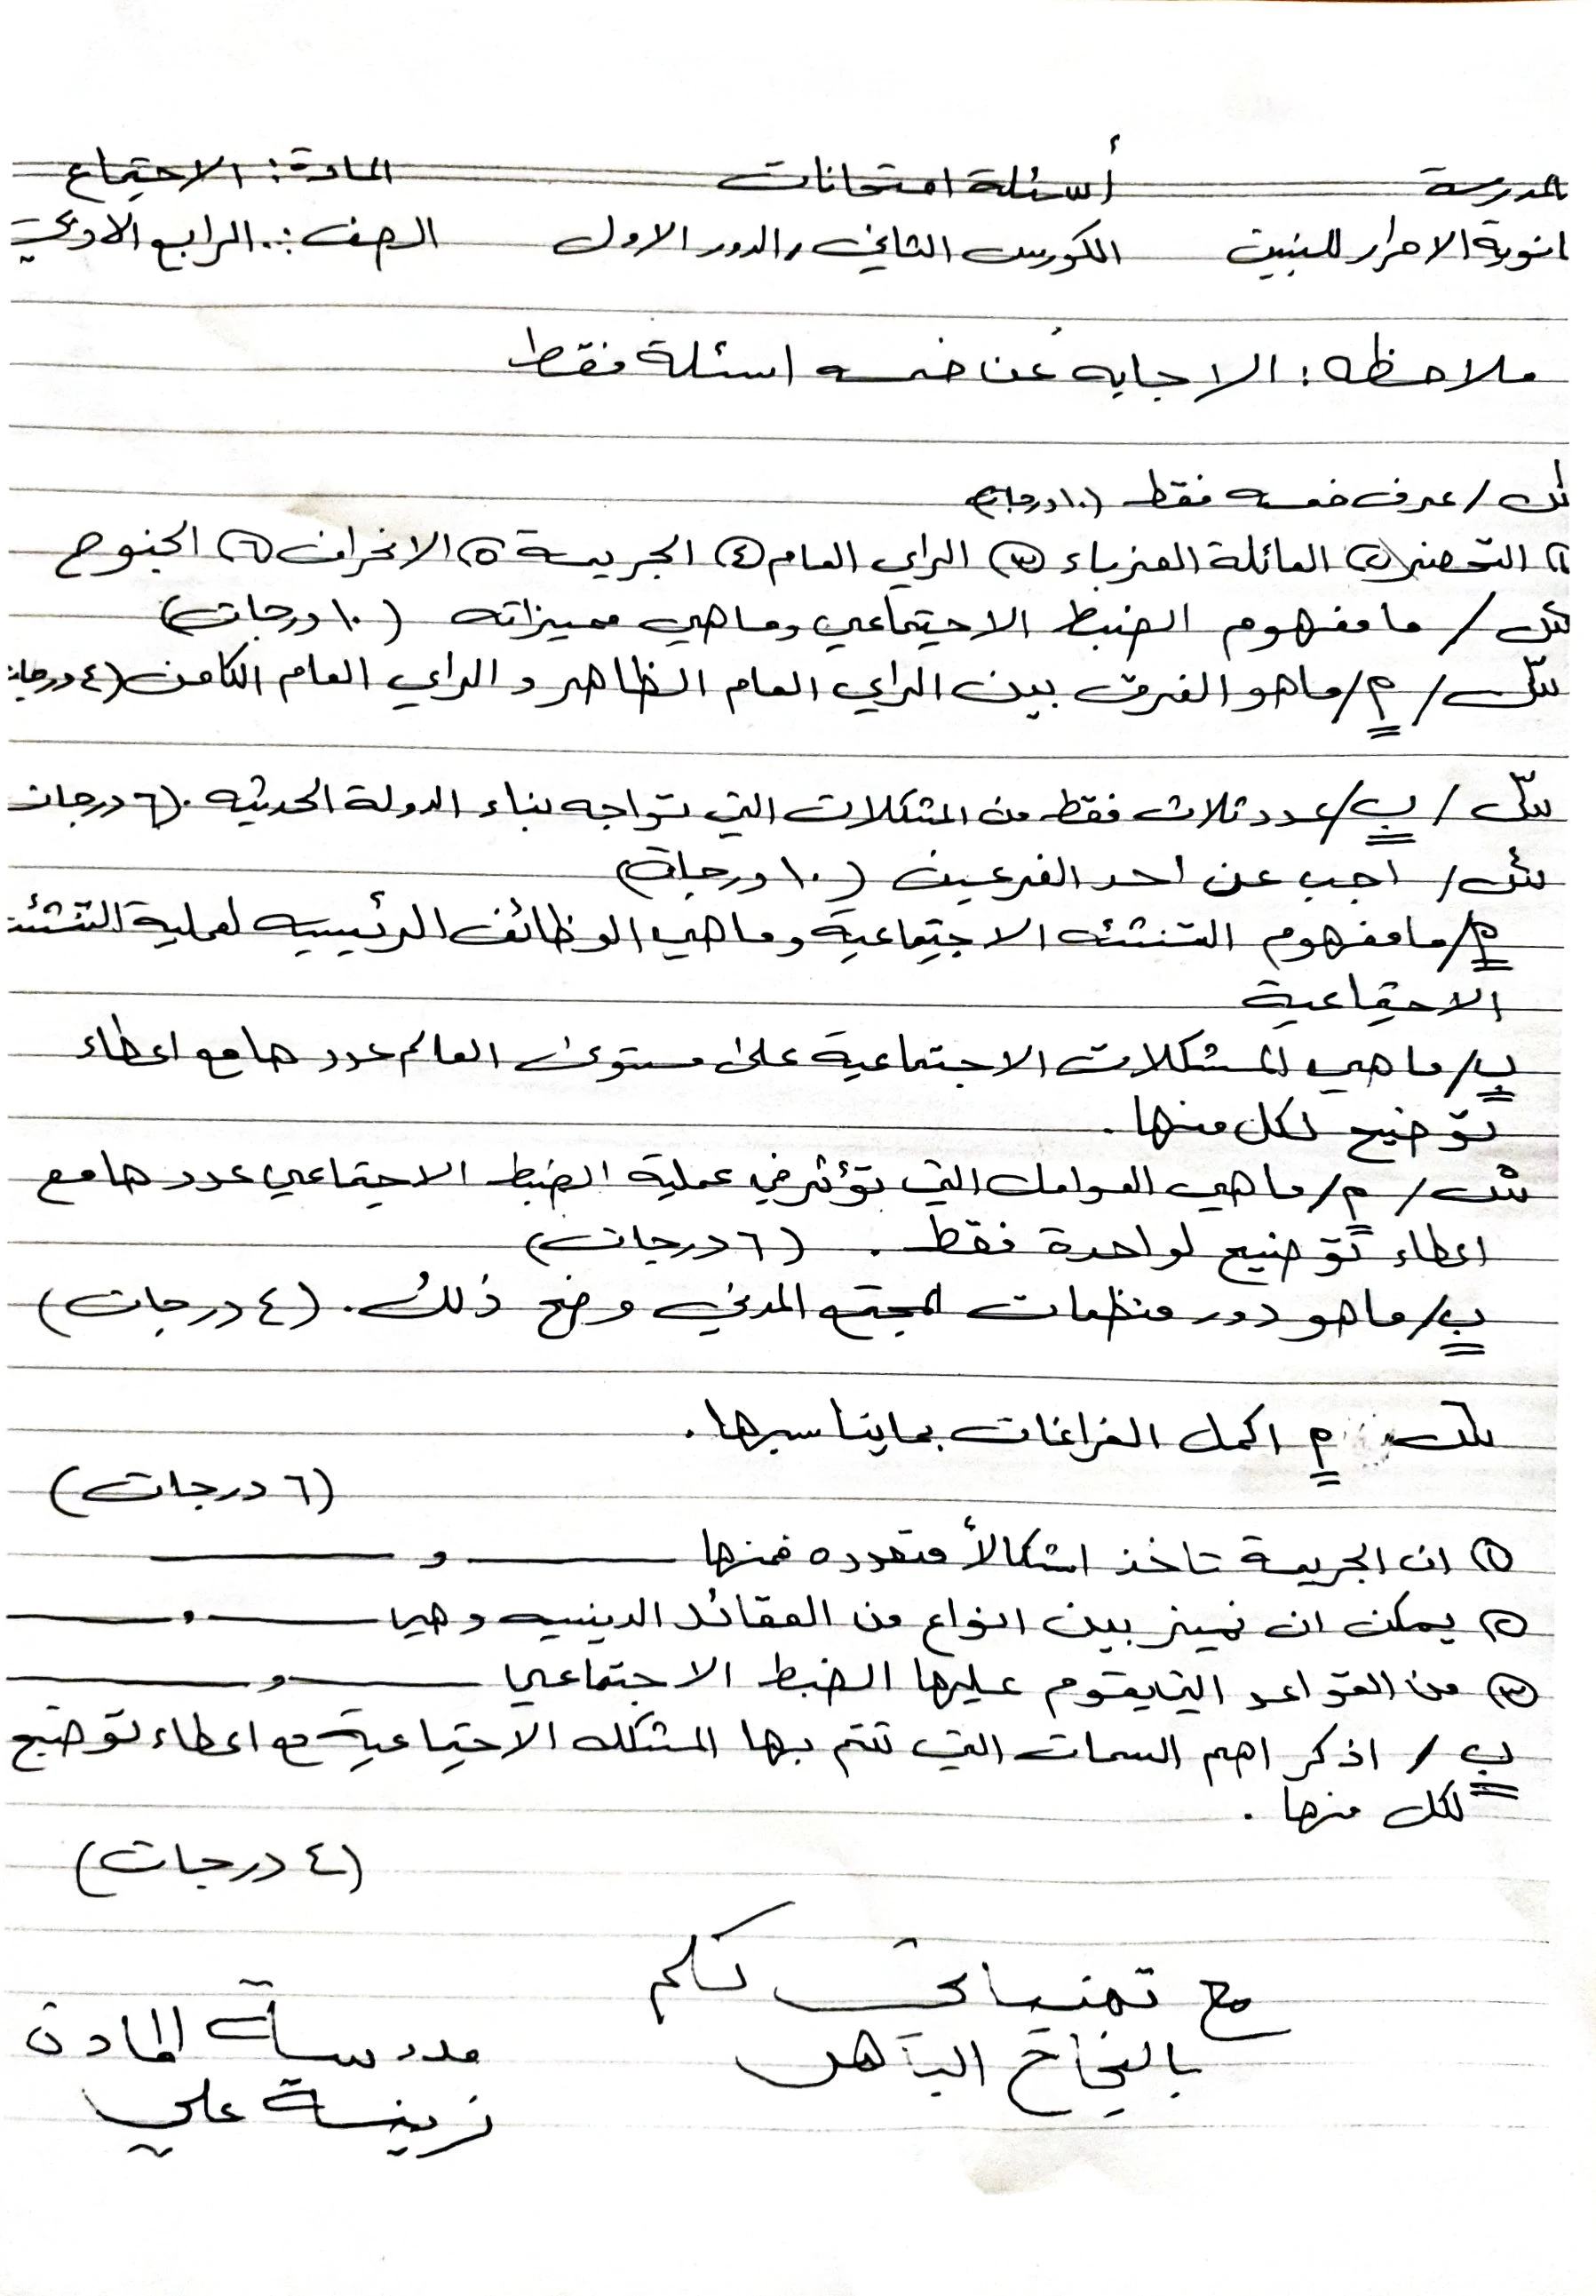 المدرسة أسئلة امتحانات المادة : الاجتماع
انوية الاحرار للبنين الكورس الثاني / الدور الاول الصف : الرابع الادبي
ملاحظه : الاجابه عن خمسه اسئلة فقط
س١ / عرف خمسه فقط (١٠ درجات)
١ التحضر ٢ العائلة العزباء ٣ الراي العام ٤ الجريمة ٥ الانحراف ٦ الجنوح
س٢ / ما مفهوم الضبط الاجتماعي وماهي مميزاته (١٠ درجات)
س٣ / م / ماهو الفرق بين الراي العام الظاهر و الراي العام الكامن (٤ درجات
س٣ / ب / عدد ثلاث فقط من المشكلات التي تواجه بناء الدولة الحديثه . (٦ درجات
س٤ / اجب عن احد الفرعين (١٠ درجة)
م / ما مفهوم التنشئه الاجتماعية وماهي الوظائف الرئيسيه لعملية التنشئة
الاجتماعية
ب / ماهي المشكلات الاجتماعية على مستوى العالم عدد ها مع اعطاء
توضيح لكل منها .
س٥ / م / ماهي العوامل التي تؤثر في عملية الضبط الاجتماعي عدد ها مع
اعطاء توضيح لواحدة فقط . (٦ درجات)
ب / ماهو دور منظمات المجتمع المدني وضح ذلك . (٤ درجات)
س٦ م اكمل الفراغات بمايناسبها .
(٦ درجات)
١ ان الجريمة تاخذ اشكالاً متعدده فمنها ــــــ و ــــــ
٢ يمكن ان نميز بين انواع من العقائد الدينيه وهي ــــــ و ــــــ
٣ من القواعد التي يقوم عليها الضبط الاجتماعي ــــــ و ــــــ
ب / اذكر اهم السمات التي تتم بها المشكله الاجتماعية مع اعطاء توضيح
لكل منها .
(٤ درجات)
مع تمنياتي لكم
بالنجاح الباهر
مدرسة المادة
زينة علي